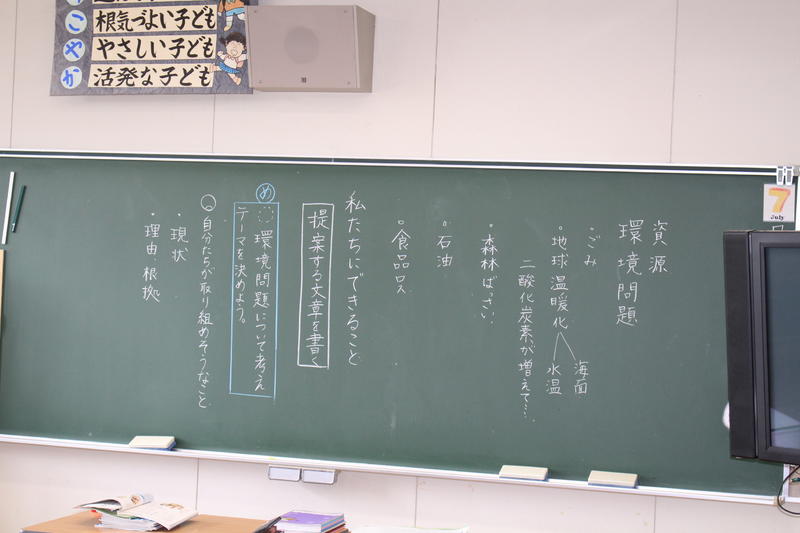 根気づよい子ども
やさしい子ども
活発な子ども
こやか
7
July
資源
環境問題
・ごみ
・地球温暖化
海面
水温
二酸化炭素が増えて…
・森林ばっさい
・石油
・食品ロス
私たちにできること
提案する文章を書く
め
環境問題について考え
テーマを決めよう。
自分たちが取り組めそうなこと
・現状
・理由、根拠